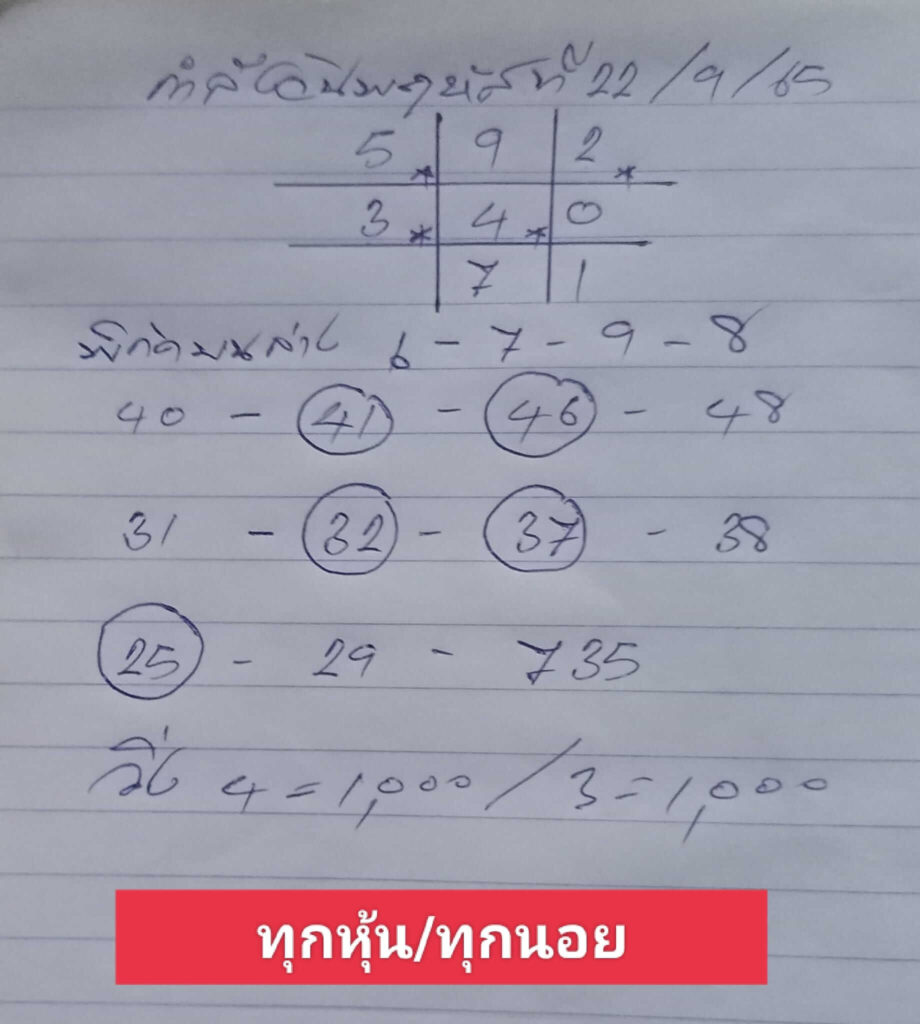 วันพฤหัสที่ 22/9/65
5 9 2
3 4 0
7 1
พิกัดบนล่าง 6 - 7 - 9 - 8
40 - 41 - 46 - 48
31 - 32 - 37 - 38
25 - 29 - 735
วิ่ง 4 = 1,000 / 3 = 1,000
ทุกหุ้น/ทุกนอย